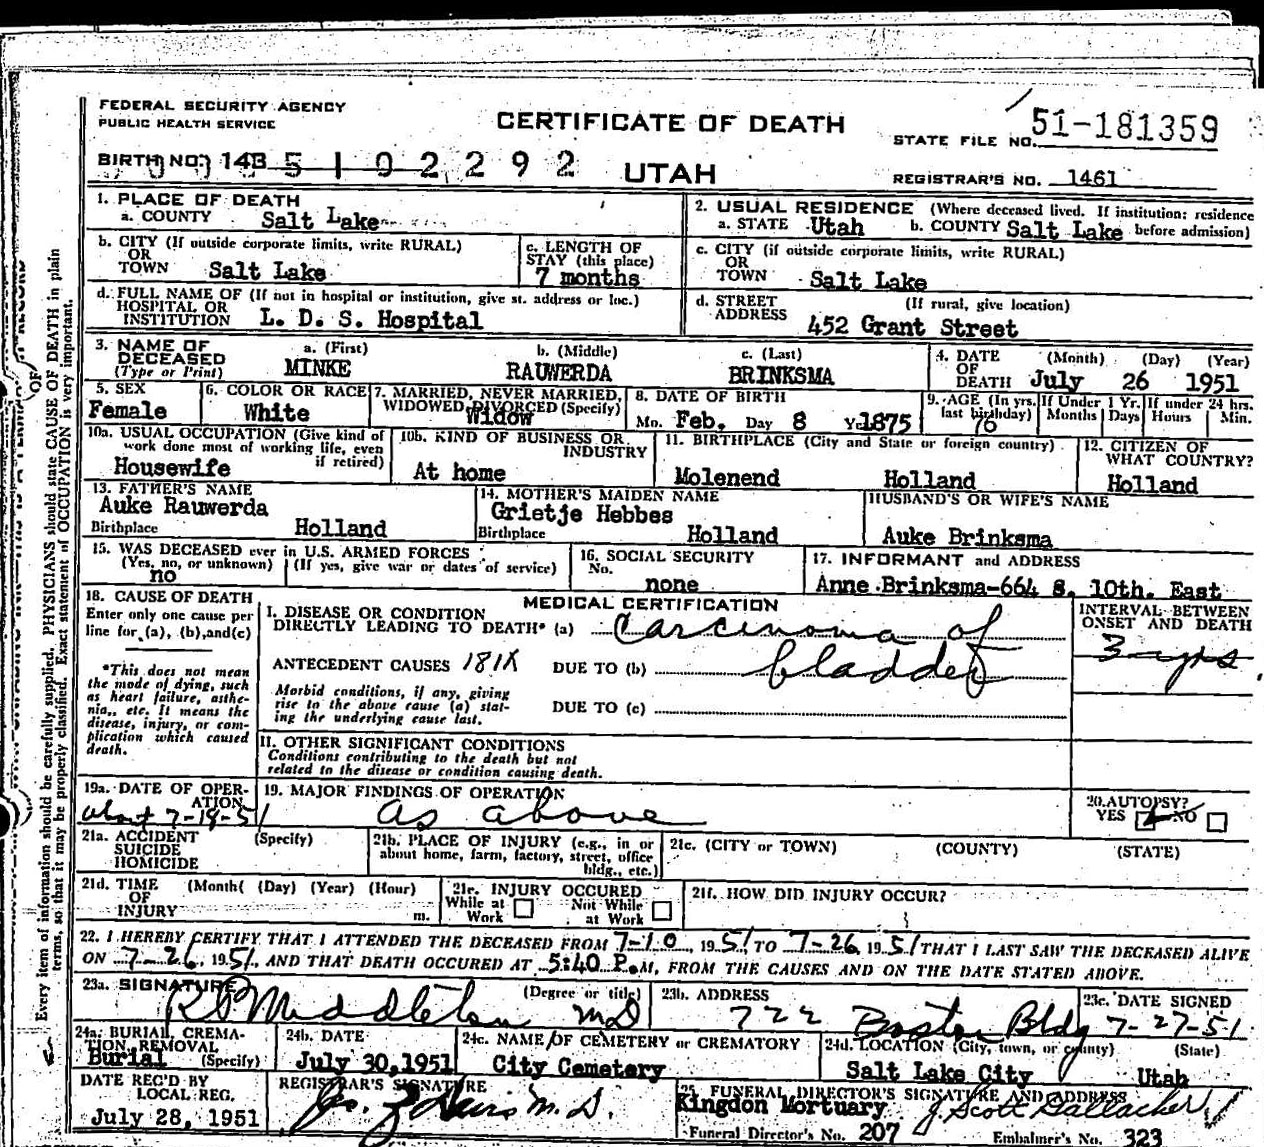 FEDERAL SECURITY AGENCY
PUBLIC HEALTH SERVICE
CERTIFICATE OF DEATH
STATE FILE NO. 51-181359
BIRTH NO. 143 5 1 0 2 2 9 2
UTAH
REGISTRAR'S NO. 1461
1. PLACE OF DEATH
a. COUNTY Salt Lake
2. USUAL RESIDENCE (Where deceased lived. If institution: residence before admission)
a. STATE Utah b. COUNTY Salt Lake
b. CITY (If outside corporate limits, write RURAL) OR TOWN Salt Lake
c. LENGTH OF STAY (this place) 7 months
c. CITY (if outside corporate limits, write RURAL) OR TOWN Salt Lake
d. FULL NAME OF (If not in hospital or institution, give st. address or loc.) HOSPITAL OR INSTITUTION L. D. S. Hospital
d. STREET ADDRESS (If rural, give location) 452 Grant Street
3. NAME OF DECEASED (Type or Print)
a. (First) MINKE
b. (Middle) RAUWERDA
c. (Last) BRINKSMA
4. DATE OF DEATH (Month) (Day) (Year) July 26 1951
5. SEX Female
6. COLOR OR RACE White
7. MARRIED, NEVER MARRIED, WIDOWED, DIVORCED (Specify) Widow
8. DATE OF BIRTH Mo. Feb. Day 8 Yr. 1875
9. AGE (In yrs. last birthday) 76
If Under 1 Yr. Months Days
If under 24 hrs. Hours Min.
10a. USUAL OCCUPATION (Give kind of work done most of working life, even if retired) Housewife
10b. KIND OF BUSINESS OR INDUSTRY At home
11. BIRTHPLACE (City and State or foreign country) Molenend Holland
12. CITIZEN OF WHAT COUNTRY? Holland
13. FATHER'S NAME Auke Rauwerda
Birthplace Holland
14. MOTHER'S MAIDEN NAME Grietje Hebbes
Birthplace Holland
HUSBAND'S OR WIFE'S NAME Auke Brinksma
15. WAS DECEASED ever in U.S. ARMED FORCES (Yes, no, or unknown) (If yes, give war or dates of service) no
16. SOCIAL SECURITY No. none
17. INFORMANT and ADDRESS Anne Brinksma-664 S. 10th. East
18. CAUSE OF DEATH
Enter only one cause per line for (a), (b), and (c)
*This does not mean the mode of dying, such as heart failure, asthenia, etc. It means the disease, injury, or complication which caused death.
MEDICAL CERTIFICATION
I. DISEASE OR CONDITION DIRECTLY LEADING TO DEATH* (a) Carcinoma of
INTERVAL BETWEEN ONSET AND DEATH
3 yrs
ANTECEDENT CAUSES 181X DUE TO (b) bladder
Morbid conditions, if any, giving rise to the above cause (a) stating the underlying cause last.
DUE TO (c)
II. OTHER SIGNIFICANT CONDITIONS
Conditions contributing to the death but not related to the disease or condition causing death.
19a. DATE OF OPERATION about 7-19-51
19. MAJOR FINDINGS OF OPERATION as above
20. AUTOPSY? YES NO
21a. ACCIDENT SUICIDE HOMICIDE (Specify)
21b. PLACE OF INJURY (e.g., in or about home, farm, factory, street, office bldg., etc.)
21c. (CITY or TOWN) (COUNTY) (STATE)
21d. TIME OF INJURY (Month) (Day) (Year) (Hour) m.
21e. INJURY OCCURED While at Work Not While at Work
21f. HOW DID INJURY OCCUR?
22. I HEREBY CERTIFY THAT I ATTENDED THE DECEASED FROM 7-10, 1951 TO 7-26 1951 THAT I LAST SAW THE DECEASED ALIVE
ON 7-26, 1951, AND THAT DEATH OCCURED AT 5:40 P.M, FROM THE CAUSES AND ON THE DATE STATED ABOVE.
23a. SIGNATURE (Degree or title) R P Middleton MD
23b. ADDRESS 722 Boston Bldg
23c. DATE SIGNED 7-27-51
24a. BURIAL, CREMATION, REMOVAL (Specify) Burial
24b. DATE July 30, 1951
24c. NAME OF CEMETERY or CREMATORY City Cemetery
24d. LOCATION (City, town, or county) (State) Salt Lake City Utah
DATE REC'D BY LOCAL REG. July 28, 1951
REGISTRAR'S SIGNATURE M.D.
25. FUNERAL DIRECTOR'S SIGNATURE AND ADDRESS
Kingdon Mortuary J Scott Gallacher
Funeral Director's No. 207 Embalmer's No. 323
Every item of information should be carefully supplied. PHYSICIANS should state CAUSE OF DEATH in plain
terms, so that it may be properly classified. Exact statement of OCCUPATION is very important.